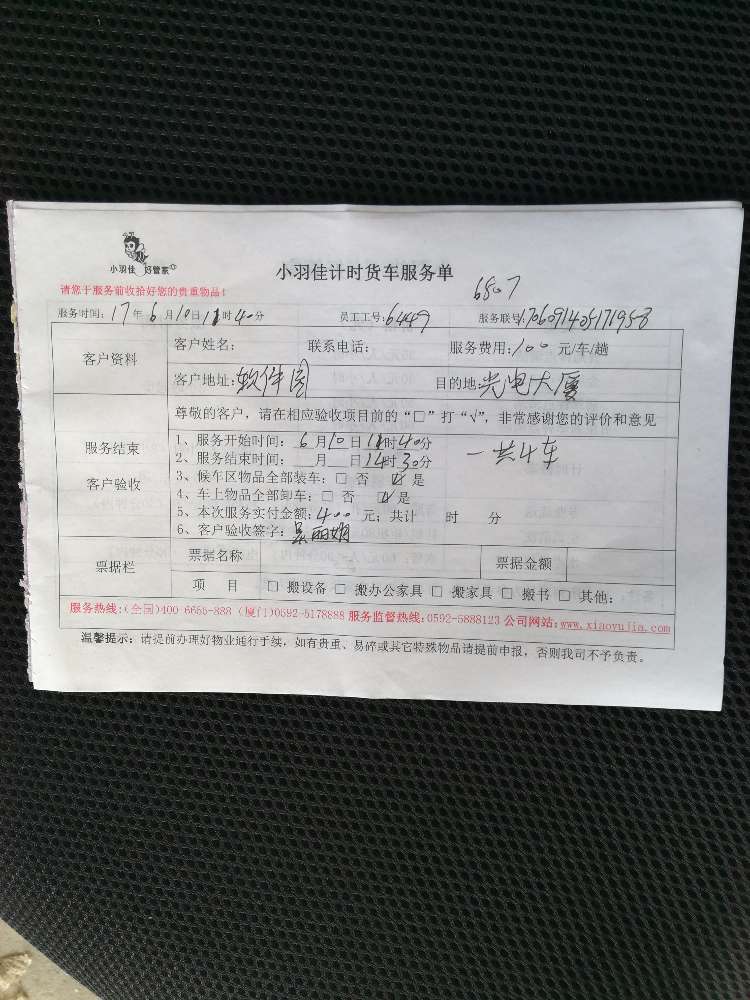 小羽佳 好管家
小羽佳计时货车服务单
6807
请您于服务前收拾好您的贵重物品！
服务时间：17年6月10日11时40分 员工工号：6449 服务联号：
客户资料
客户姓名： 联系电话： 服务费用：100元/车/趟
客户地址：软件园 目的地：光电大厦
服务结束
客户验收
尊敬的客户，请在相应验收项目前的“□”打“√”，非常感谢您的评价和意见
1、服务开始时间：6月10日11时40分
一共4车
2、服务结束时间： 月 日14时30分
3、候车区物品全部装车：□ 否 ☑ 是
4、车上物品全部卸车：□ 否 ☑ 是
5、本次服务实付金额：400元；共计 时 分
6、客户验收签字：吴丽娟
票据栏
票据名称 票据金额
项 目 □ 搬设备 □ 搬办公家具 □ 搬家具 □ 搬书 □ 其他：
服务热线：（全国）400-6655-888（厦门）0592-5178888 服务监督热线：0592-5888123 公司网站：www.xiaoyujia.com
温馨提示：请提前办理好物业通行手续，如有贵重、易碎或其它特殊物品请提前申报，否则我司不予负责。